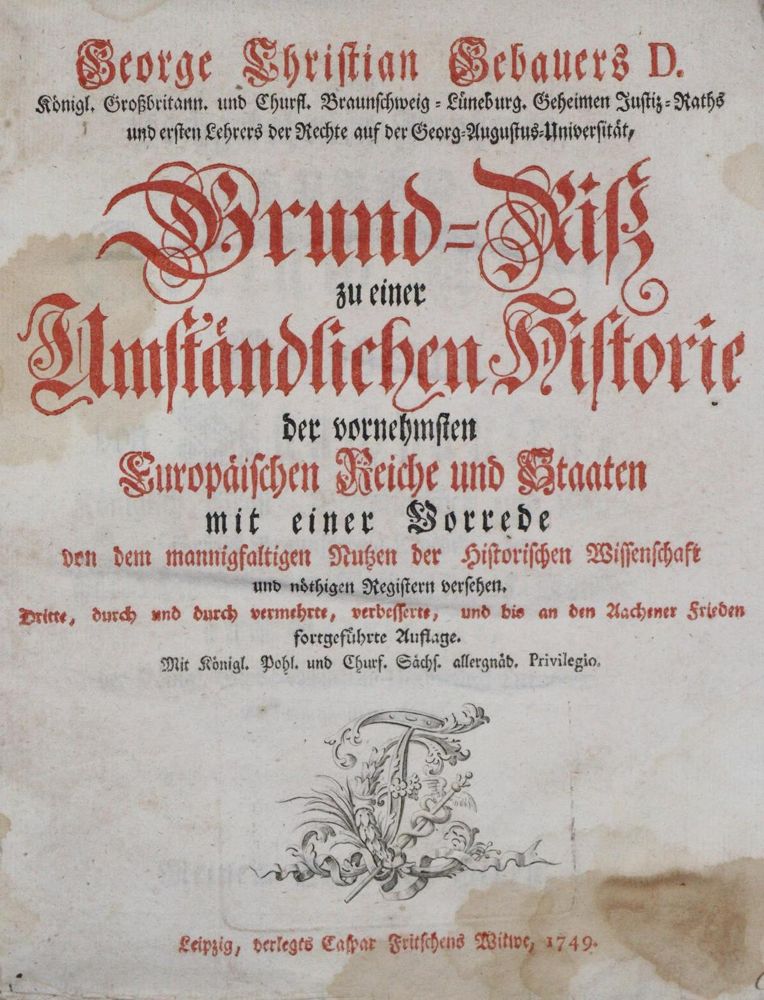 George Christian Gebauers D.
Königl. Großbritann. und Churfl. Braunschweig-Lüneburg. Geheimen Justiz-Raths
und ersten Lehrers der Rechte auf der Georg-Augustus-Universität,
Grund-Riß
zu einer
Umständlichen Historie
der vornehmsten
Europäischen Reiche und Staaten
mit einer Vorrede
von dem mannigfaltigen Nutzen der Historischen Wissenschaft
und nöthigen Registern versehen.
Dritte, durch und durch vermehrte, verbesserte, und bis an den Aachener Frieden
fortgeführte Auflage.
Mit Königl. Pohl. und Churf. Sächs. allergnäd. Privilegio.
Leipzig, verlegts Caspar Fritschens Witwe, 1749.